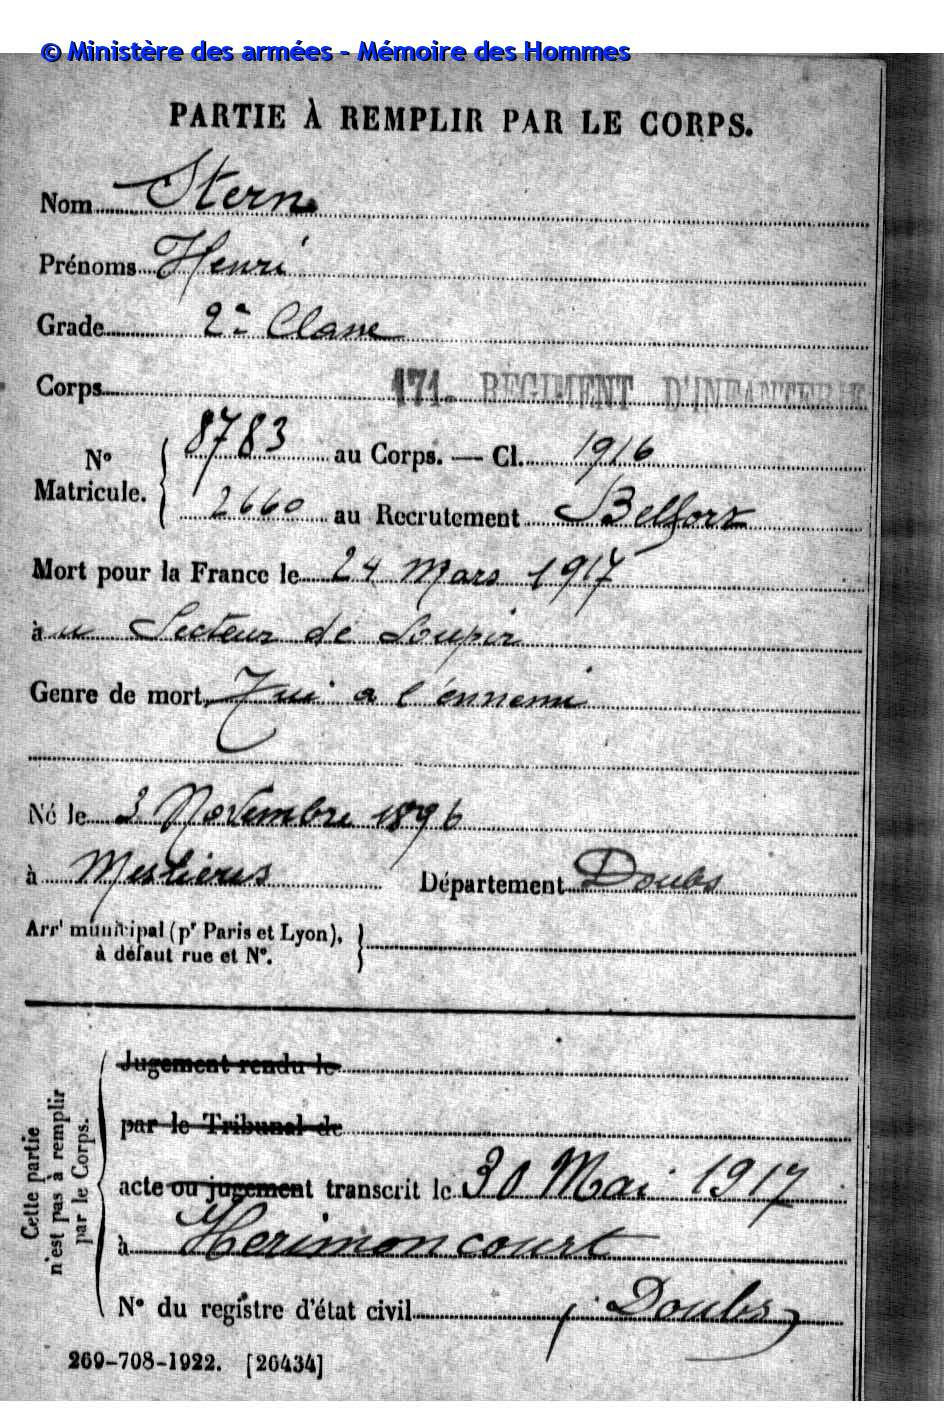 © Ministère des armées - Mémoire des Hommes
PARTIE À REMPLIR PAR LE CORPS.
Nom Stern
Prénoms Henri
Grade 2e Classe
Corps 171e RÉGIMENT D'INFANTERIE
N° Matricule. 8783 au Corps. — Cl. 1916
2660 au Recrutement Belfort
Mort pour la France le 24 Mars 1917
à u Secteur de Soupir
Genre de mort Tué a l'ennemi
Né le 3 Novembre 1896
à Département Doubs
Arrt municipal (pr Paris et Lyon),
à défaut rue et N°.
Cette partie
n'est pas à remplir
par le Corps.
Jugement rendu le
par le Tribunal de
acte ou jugement transcrit le 30 Mai 1917
à Herimoncourt
N° du registre d'état civil (Doubs)
269-708-1922. [26434]